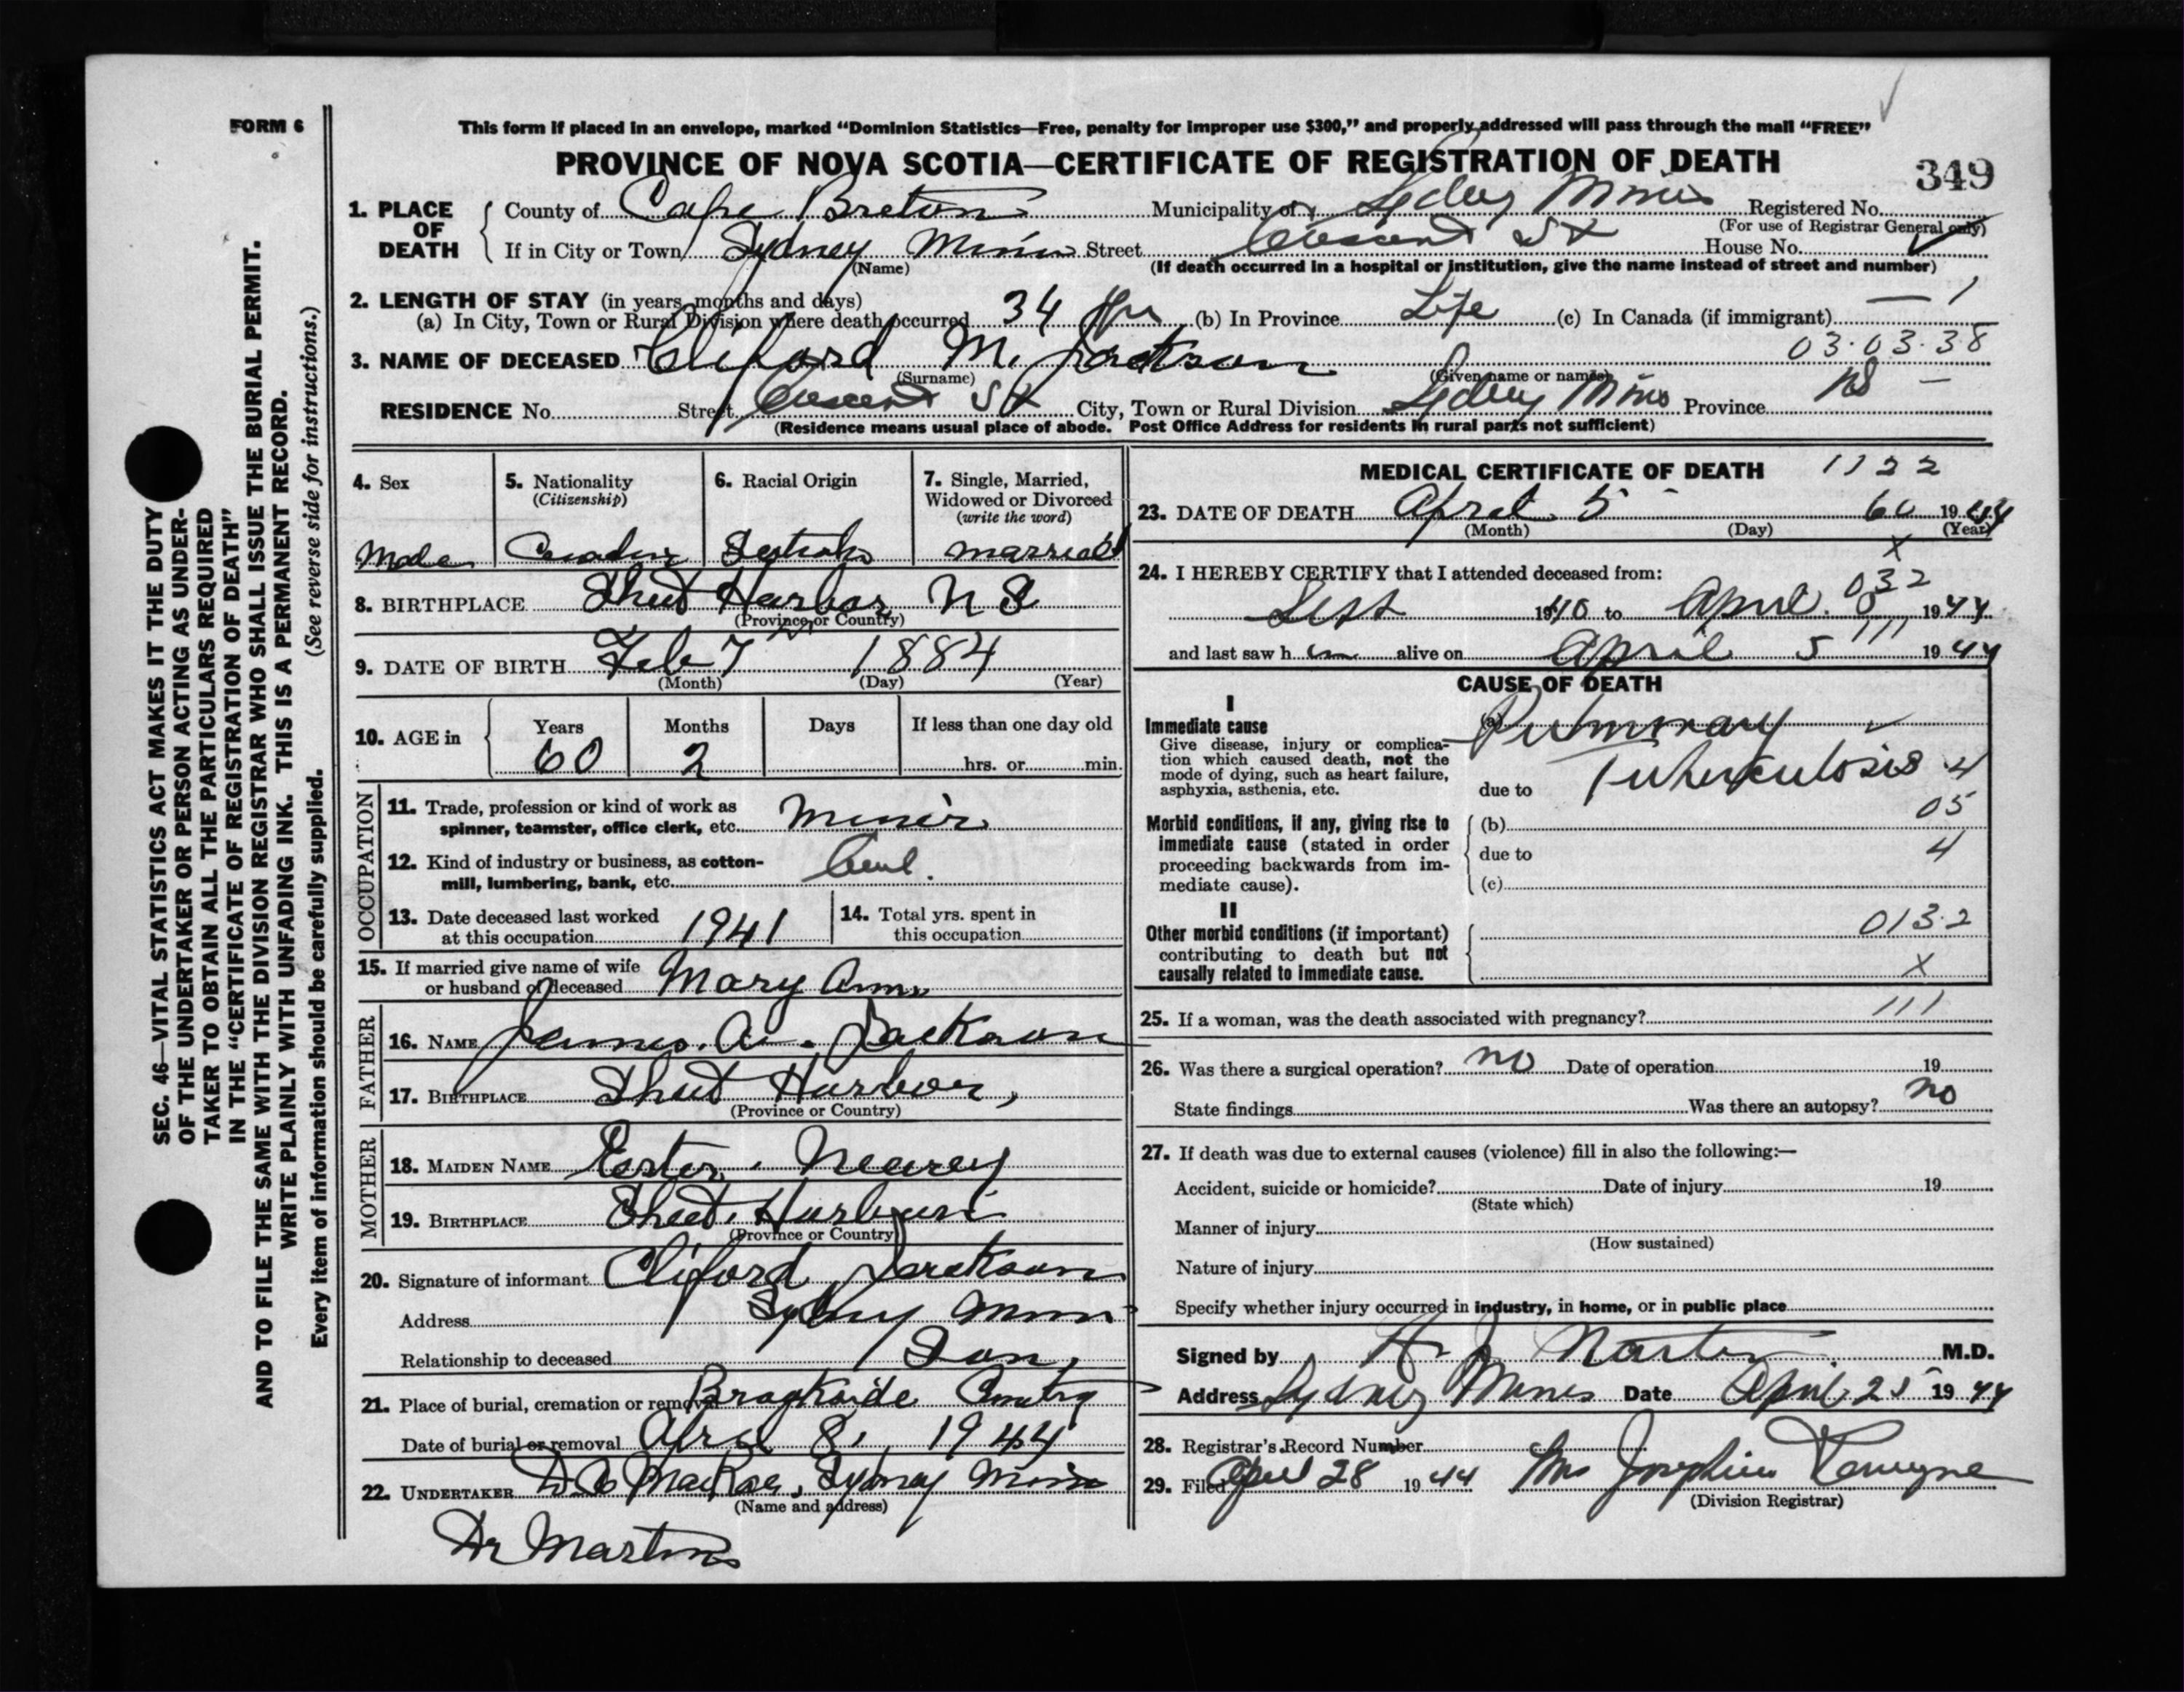 FORM 6
SEC. 46—VITAL STATISTICS ACT MAKES IT THE DUTY
OF THE UNDERTAKER OR PERSON ACTING AS UNDER-
TAKER TO OBTAIN ALL THE PARTICULARS REQUIRED
IN THE "CERTIFICATE OF REGISTRATION OF DEATH"
AND TO FILE THE SAME WITH THE DIVISION REGISTRAR WHO SHALL ISSUE THE BURIAL PERMIT.
WRITE PLAINLY WITH UNFADING INK. THIS IS A PERMANENT RECORD.
Every item of information should be carefully supplied. (See reverse side for instructions.)
This form if placed in an envelope, marked "Dominion Statistics—Free, penalty for improper use $300," and properly addressed will pass through the mail "FREE"
PROVINCE OF NOVA SCOTIA—CERTIFICATE OF REGISTRATION OF DEATH
349
1. PLACE OF DEATH
County of Cape Breton Municipality of Sydney Mines Registered No.
(For use of Registrar General only)
If in City or Town Sydney Mines Street Crescent St House No.
(Name)
(If death occurred in a hospital or institution, give the name instead of street and number)
2. LENGTH OF STAY (in years, months and days)
(a) In City, Town or Rural Division where death occurred 34 yrs (b) In Province Life (c) In Canada (if immigrant) — 1
03.03.38
3. NAME OF DECEASED Cliford M. Jackson
(Surname) (Given name or names)
RESIDENCE No. Street Crescent St City, Town or Rural Division Sydney Mines Province NS —
(Residence means usual place of abode. Post Office Address for residents in rural parts not sufficient)
4. Sex
Male
5. Nationality
(Citizenship)
6. Racial Origin
7. Single, Married,
Widowed or Divorced
(write the word)
married
8. BIRTHPLACE Sheet Harbor N S
(Province or Country)
9. DATE OF BIRTH Feb 7 1884
(Month) (Day) (Year)
10. AGE in
Years Months Days If less than one day old
60 2 hrs. or min.
OCCUPATION
11. Trade, profession or kind of work as
spinner, teamster, office clerk, etc. Miner
12. Kind of industry or business, as cotton-
mill, lumbering, bank, etc. Coal.
13. Date deceased last worked
at this occupation 1941
14. Total yrs. spent in
this occupation
15. If married give name of wife
or husband of deceased Mary Ann
FATHER
16. NAME James. A. Jackson
17. BIRTHPLACE Sheet Harbor,
(Province or Country)
MOTHER
18. MAIDEN NAME Ester
19. BIRTHPLACE Sheet Harbour
(Province or Country)
20. Signature of informant Cliford Jackson
Address Sydney Mines
Relationship to deceased Son,
21. Place of burial, cremation or removal Brookside
Date of burial or removal April 8, 1944
22. UNDERTAKER MacRae, Sydney Mines
(Name and address)
Dr Martin
MEDICAL CERTIFICATE OF DEATH 1122
23. DATE OF DEATH April 5 60 1944
(Month) (Day) (Year)
x
24. I HEREBY CERTIFY that I attended deceased from:
032
Sept 1940 to April 1944
111
and last saw h im alive on April 5 1944
CAUSE OF DEATH
I
Immediate cause
Give disease, injury or complica-
tion which caused death, not the
mode of dying, such as heart failure,
asphyxia, asthenia, etc.
(a) Pulmonary
due to Tuberculosis 4
05
Morbid conditions, if any, giving rise to
immediate cause (stated in order
proceeding backwards from im-
mediate cause).
(b)
due to 4
(c)
II
Other morbid conditions (if important)
contributing to death but not
causally related to immediate cause.
013.2
x
111
25. If a woman, was the death associated with pregnancy?
26. Was there a surgical operation? no Date of operation 19
State findings Was there an autopsy? no
27. If death was due to external causes (violence) fill in also the following:—
Accident, suicide or homicide? Date of injury 19
(State which)
Manner of injury
(How sustained)
Nature of injury
Specify whether injury occurred in industry, in home, or in public place
Signed by H J Martin M.D.
Address Sydney Mines Date April 25 1944
28. Registrar's Record Number
29. Filed April 28 1944 Mrs Josephine
(Division Registrar)